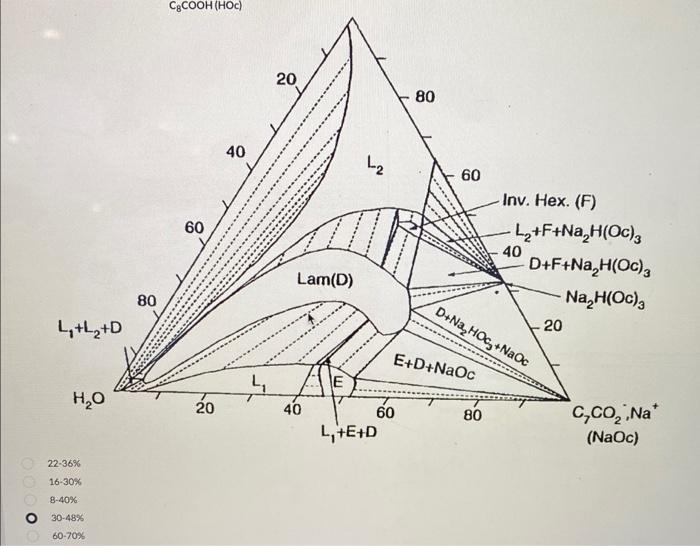 C₈COOH (HOc)
20
80
40
L₂
60
Inv. Hex. (F)
60
L₂+F+Na₂H(Oc)₃
40
D+F+Na₂H(Oc)₃
Lam(D)
80
Na₂H(Oc)₃
L₁+L₂+D
20
D+Na₂HOc₃+NaOc
E+D+NaOc
L₁
E
H₂O
20
40
60
80
C₇CO₂⁻,Na⁺
(NaOc)
L₁+E+D
22-36%
16-30%
8-40%
30-48%
60-70%